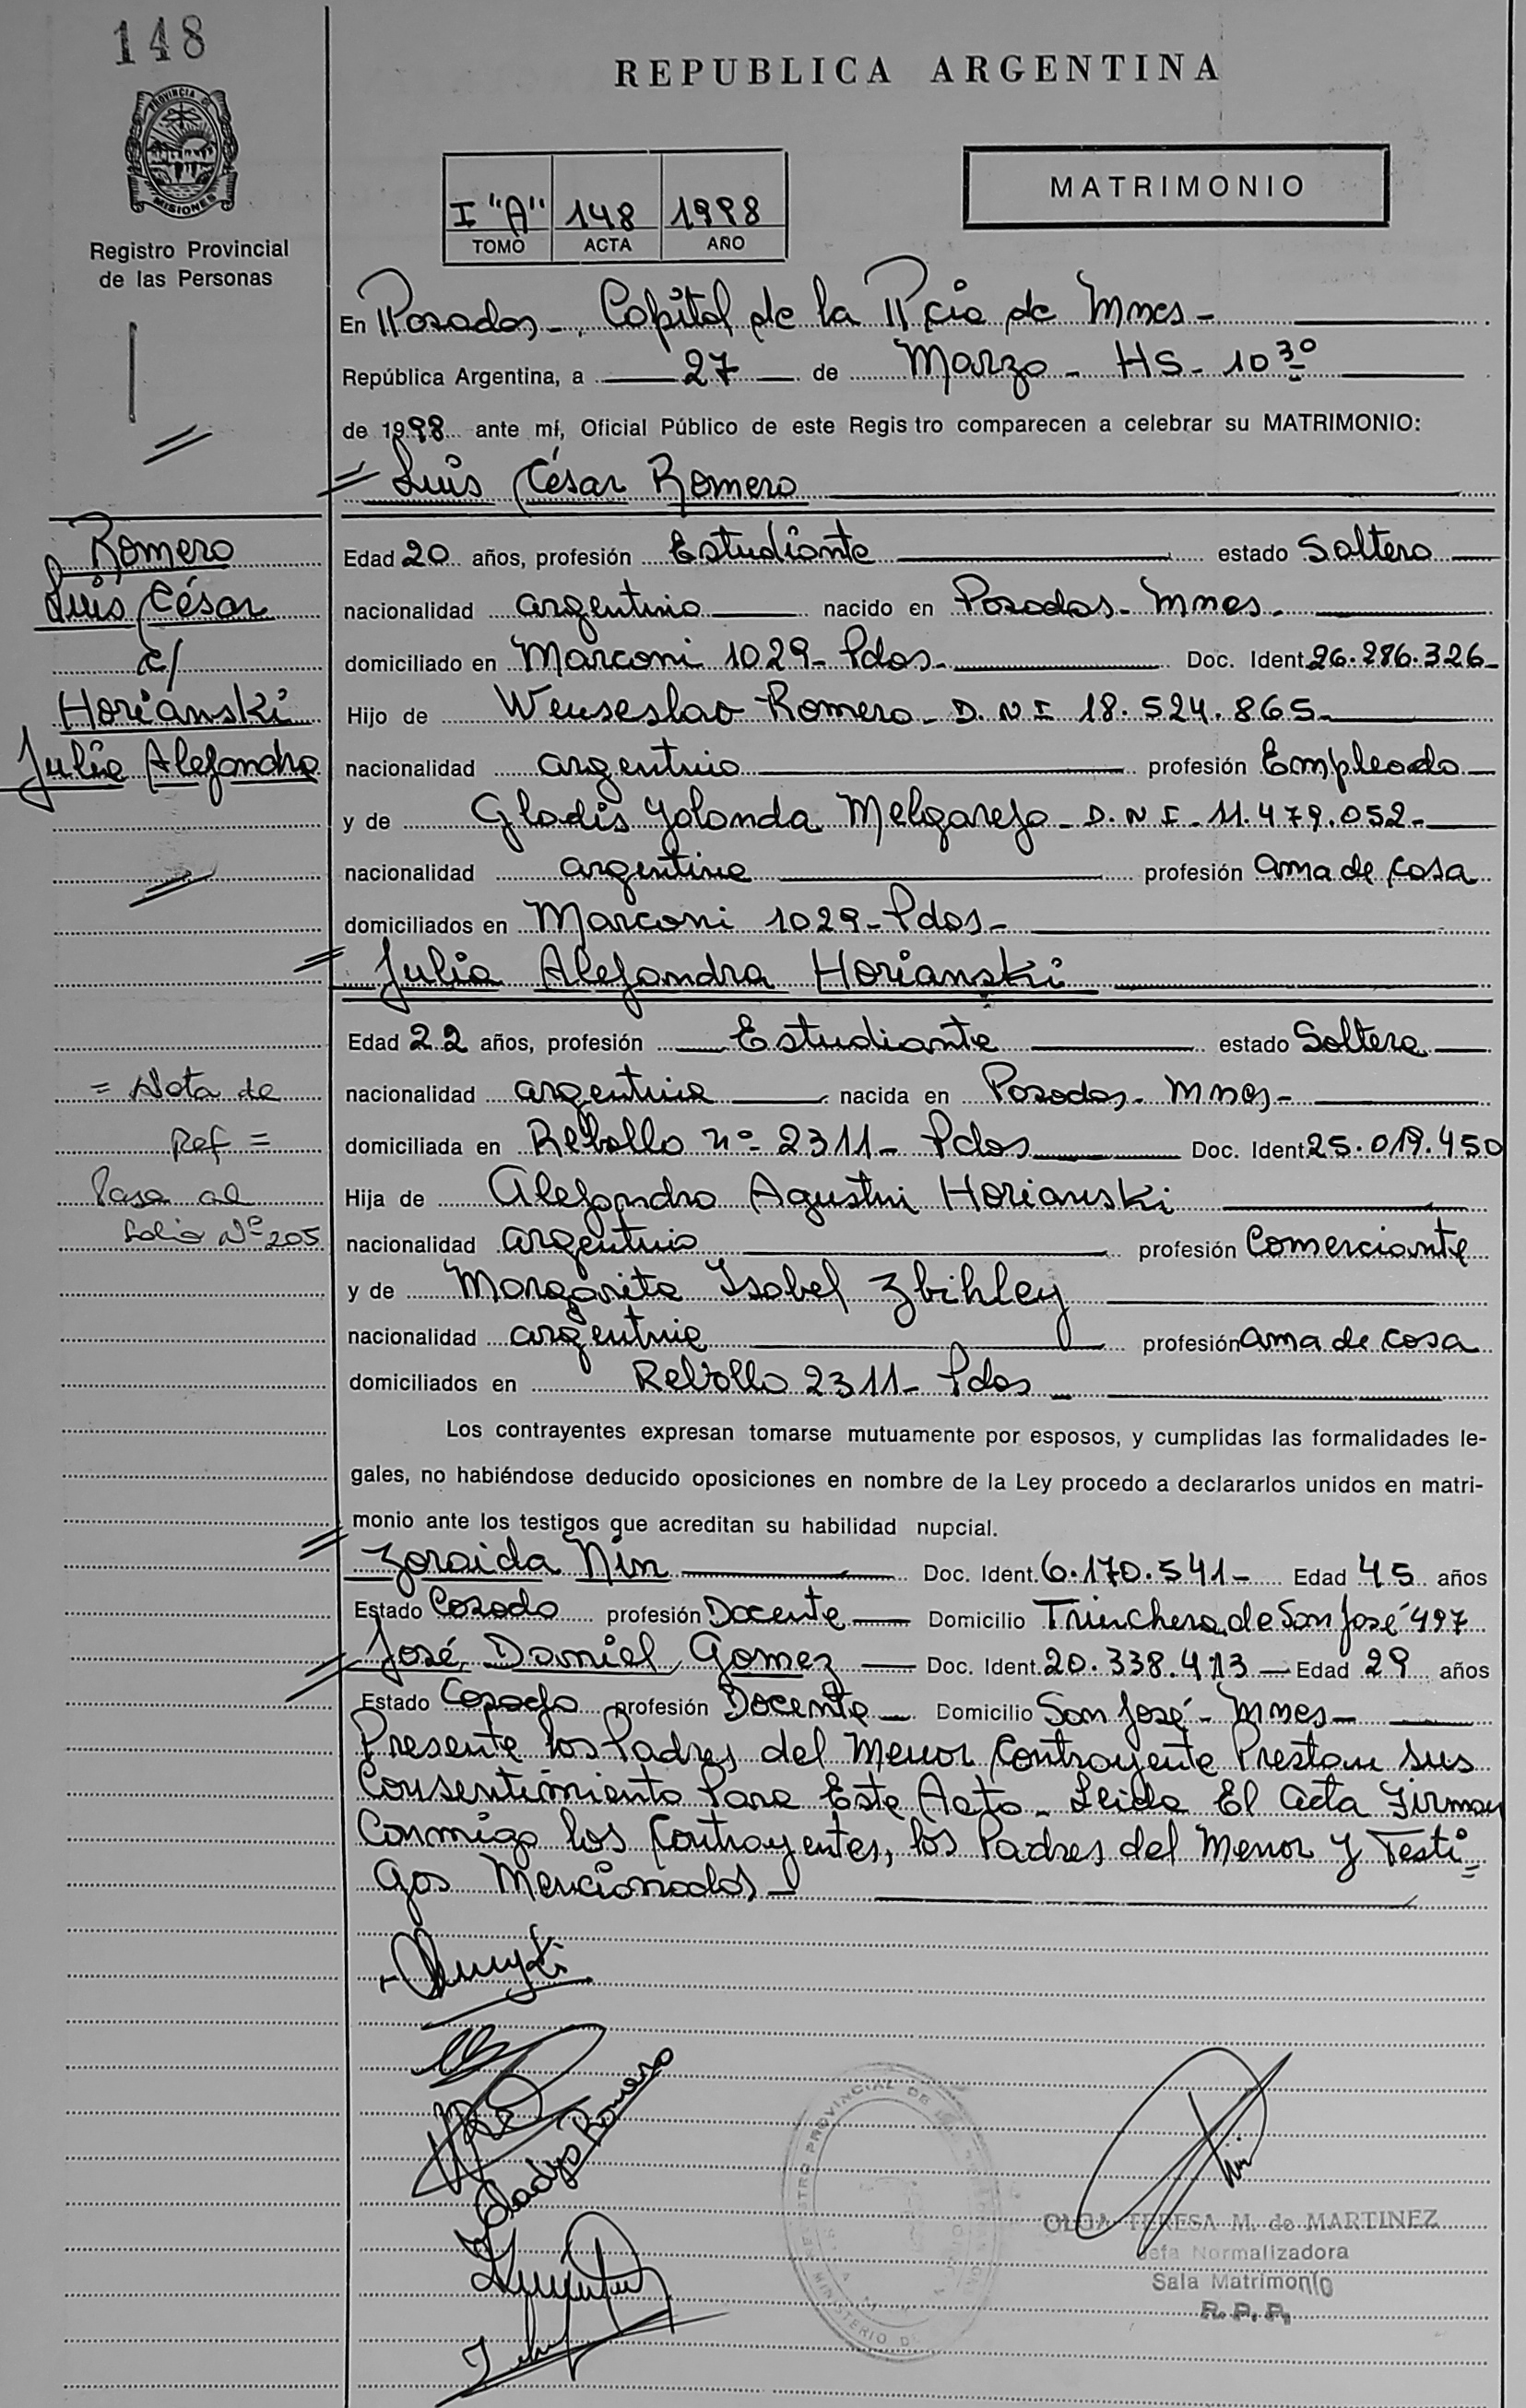 148
REPUBLICA ARGENTINA
PROVINCIA DE
MISIONES
Registro Provincial
de las Personas
I "A" 148 1998
TOMO ACTA AÑO
MATRIMONIO
En Posadas -, Capital de la Pcia de Mnes -
República Argentina, a 27 de Marzo - HS - 10 30
de 1998 ante mí, Oficial Público de este Regis tro comparecen a celebrar su MATRIMONIO:
Luis César Romero
Romero
Luis César
c/
Horianski
Julia Alejandra
Edad 20 años, profesión Estudiante estado Soltero
nacionalidad argentino nacido en Posadas - Mnes -
domiciliado en Marconi 1029 - Pdas - Doc. Ident. 26.286.326 -
Hijo de Wenseslao Romero - D.N.I 18.524.865 -
nacionalidad argentino profesión Empleado
y de Gladis Yolanda Melgarejo - D.N.I - 11.479.052 -
nacionalidad argentina profesión ama de casa
domiciliados en Marconi 1029 - Pdas -
Julia Alejandra Horianski
Edad 22 años, profesión Estudiante estado Soltera
nacionalidad argentina nacida en Posadas - Mnes -
domiciliada en Rebollo nº 2311 - Pdas Doc. Ident. 25.019.450
Hija de Alejandro Agustin Horianski
nacionalidad argentino profesión Comerciante
y de Margarita Isabel Zbihley
nacionalidad argentina profesión ama de casa
domiciliados en Rebollo 2311 - Pdas -
= Nota de
Ref =
Pasa al
folio Nº 205
Los contrayentes expresan tomarse mutuamente por esposos, y cumplidas las formalidades le-
gales, no habiéndose deducido oposiciones en nombre de la Ley procedo a declararlos unidos en matri-
monio ante los testigos que acreditan su habilidad nupcial.
Zoraida Nin Doc. Ident. 6.170.541 - Edad 45 años
Estado Casado profesión Docente Domicilio Trinchera de San José 497
José Daniel Gomez Doc. Ident. 20.338.413 - Edad 29 años
Estado Casado profesión Docente Domicilio San José - Mnes -
Presente los Padres del Menor Contrayente Prestan sus
Consentimiento Para Este Acto - Leida El acta Firman
Conmigo los Contrayentes, los Padres del Menor y Testi=
gos Mencionados -
Gladys Romero
REGISTRO PROVINCIAL DE LAS
MINISTERIO DE
OLGA TERESA M. de MARTINEZ
Jefa Normalizadora
Sala Matrimonio
R. P. P.